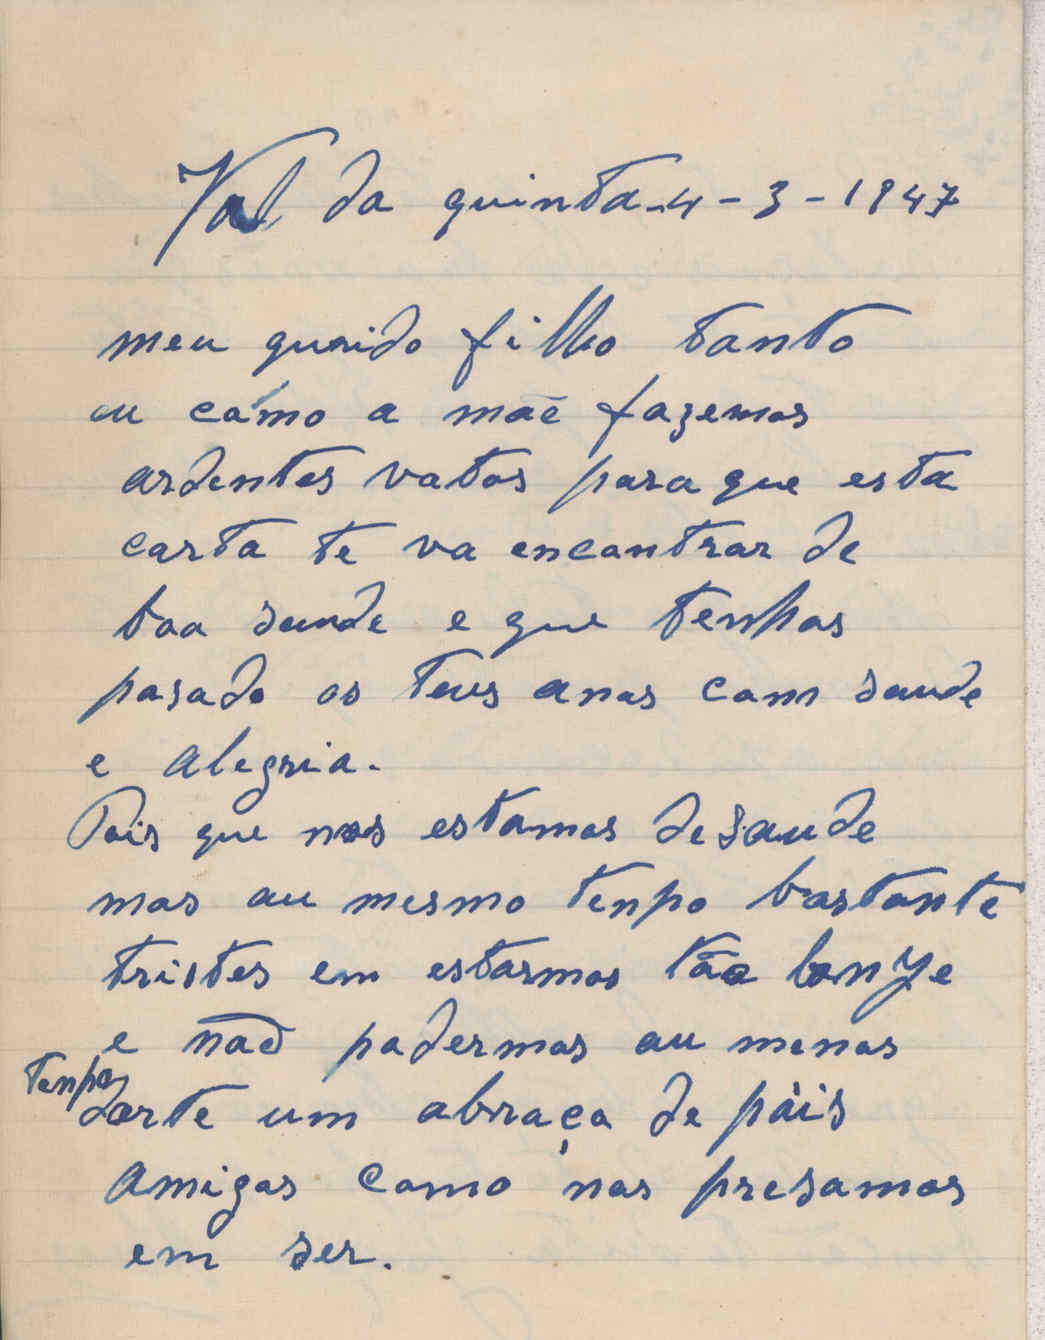 Val da quinta-4-3-1947
meu querido filho tanto
eu cómo a mãe fazemos
ardentes votos para que esta
carta te va encontrar de
boa saude e que tenhas
pasado os teus anos com saude
e alegria.
Pois que nos estamos de saude
mas au mesmo tenpo bastante
tristes em estarmos tão lonje
e não podermos au menos
tenpo
darte um abraço de páis
amigos como nos presamos
em ser.